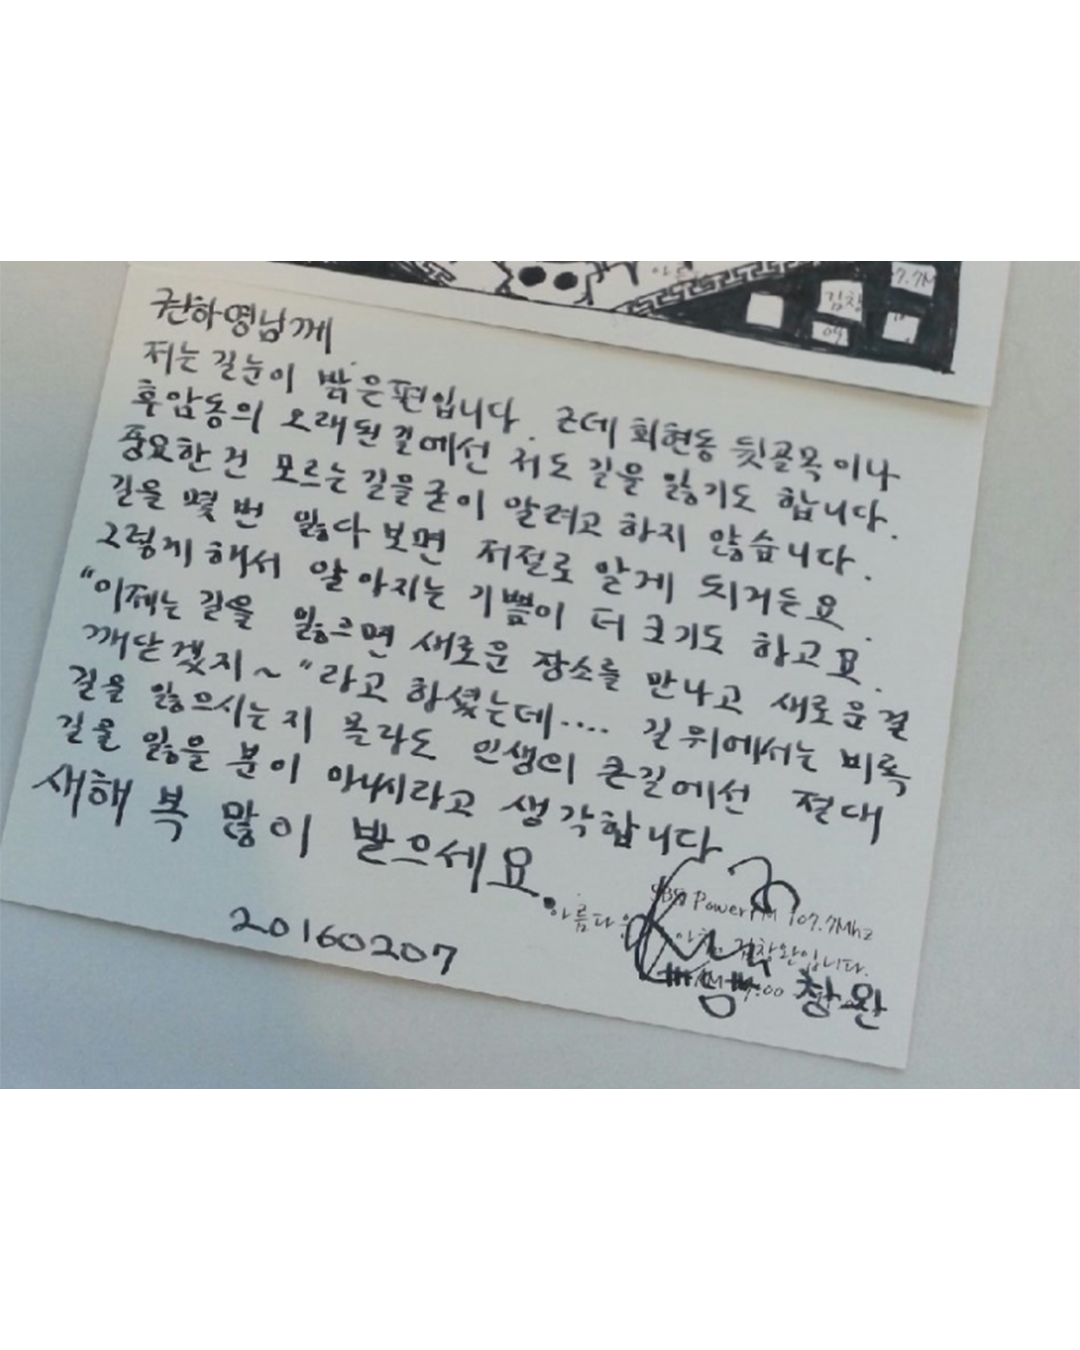 7.7M
김창
09
권하영님께
저는 길눈이 밝은편입니다. 근데 회현동 뒷골목이나
후암동의 오래된 길에선 저도 길을 잃기도 합니다.
중요한 건 모르는 길을 굳이 알려고 하지 않습니다.
길을 몇 번 잃다 보면 저절로 알게 되거든요.
그렇게 해서 알아지는 기쁨이 더 크기도 하고요.
"이제는 길을 잃으면 새로운 장소를 만나고 새로운 걸
깨닫겠지~"라고 하셨는데.... 길 위에서는 비록
길을 잃으시는지 몰라도 인생의 큰길에선 절대
길을 잃을 분이 아니시라고 생각합니다
새해 복 많이 받으세요.
SBS Power FM 107.7Mhz
아름다운 아침 김창완입니다.
AM 9:00
20160207
창완